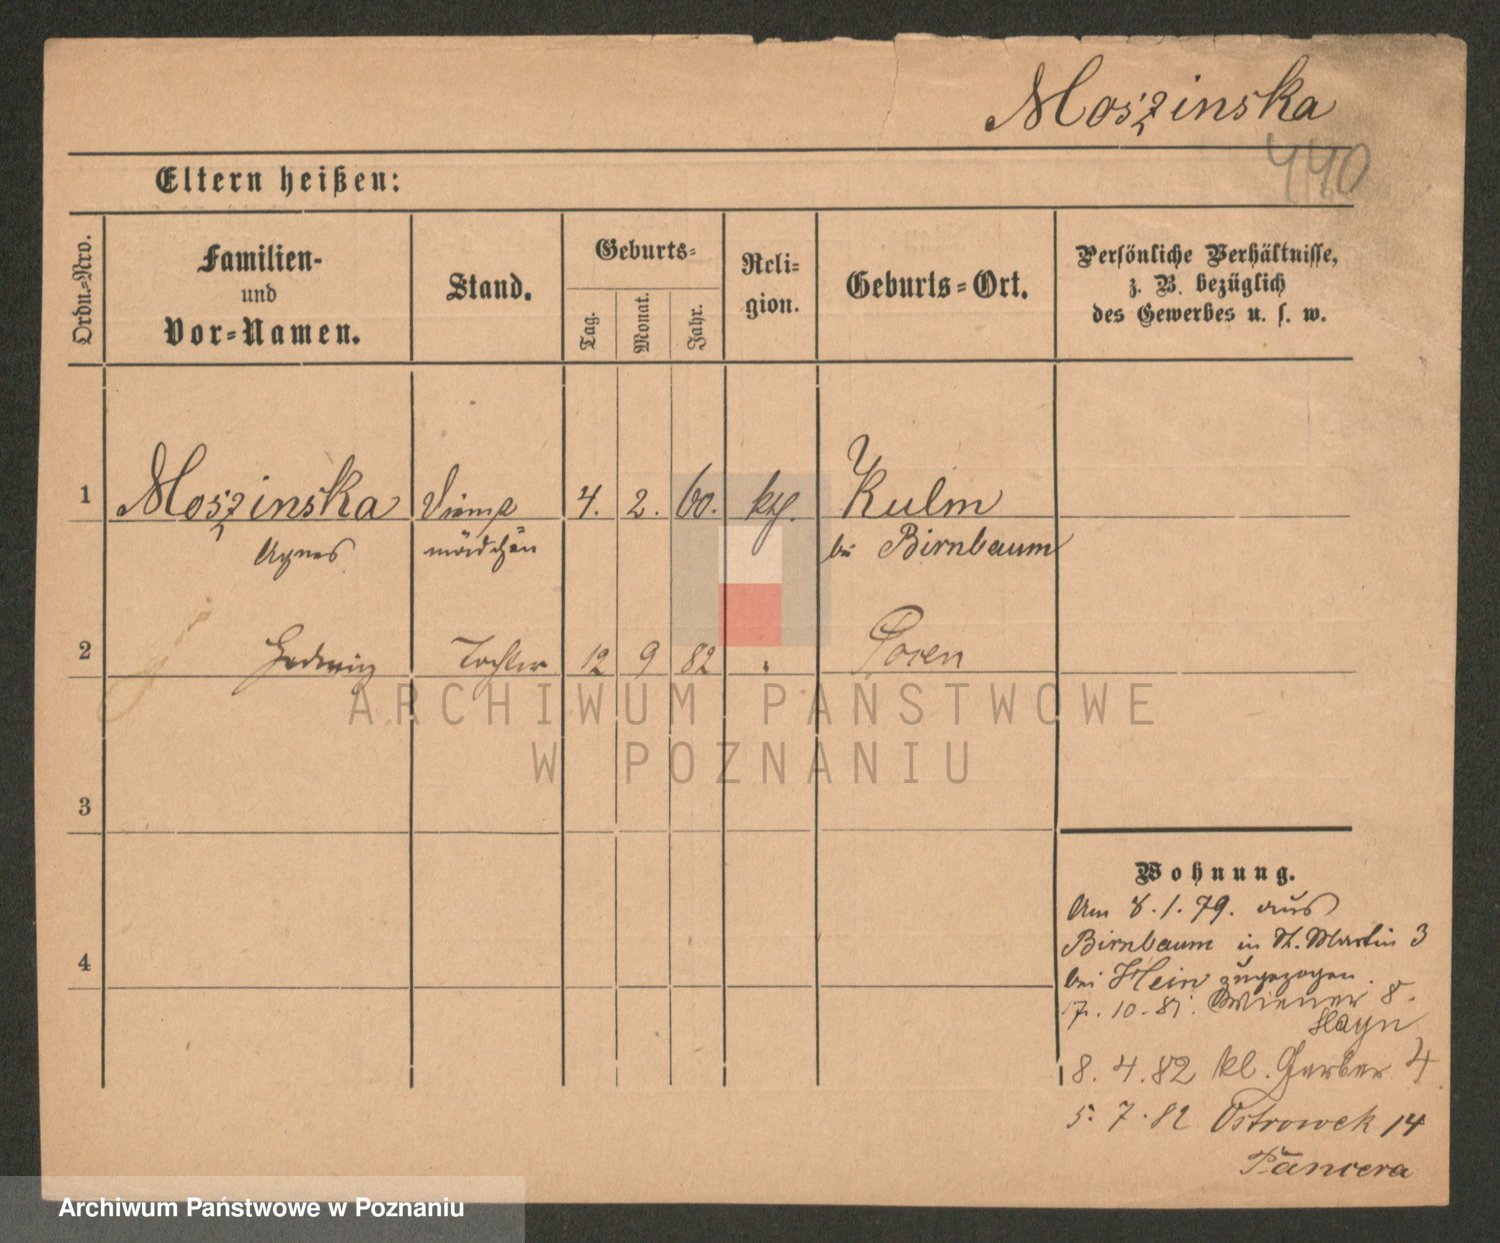 Moszinska
440
Eltern heißen:
Ordn.-Nro.
Familien-
und
Vor-Namen.
Stand.
Geburts-
Tag.
Monat.
Jahr.
Reli-
gion.
Geburts-Ort.
Persönliche Verhältnisse,
z. B. bezüglich
des Gewerbes u. s. w.
1 Moszinska 4. 2. 60. kth. Kulm
Agnes mädchen bei Birnbaum
2 Hedwig Tochter 12 9 82 " Posen
ARCHIWUM PAŃSTWOWE
W POZNANIU
3
4
Wohnung.
Am 8.1.79. aus
Birnbaum in St. Martin 3
bei Hein zugezogen.
7. 10. 81. Wiener 8.
Hayn
8. 4. 82 kl. Gerber 4
5. 7. 82 Ostrowek 14
Archiwum Państwowe w Poznaniu